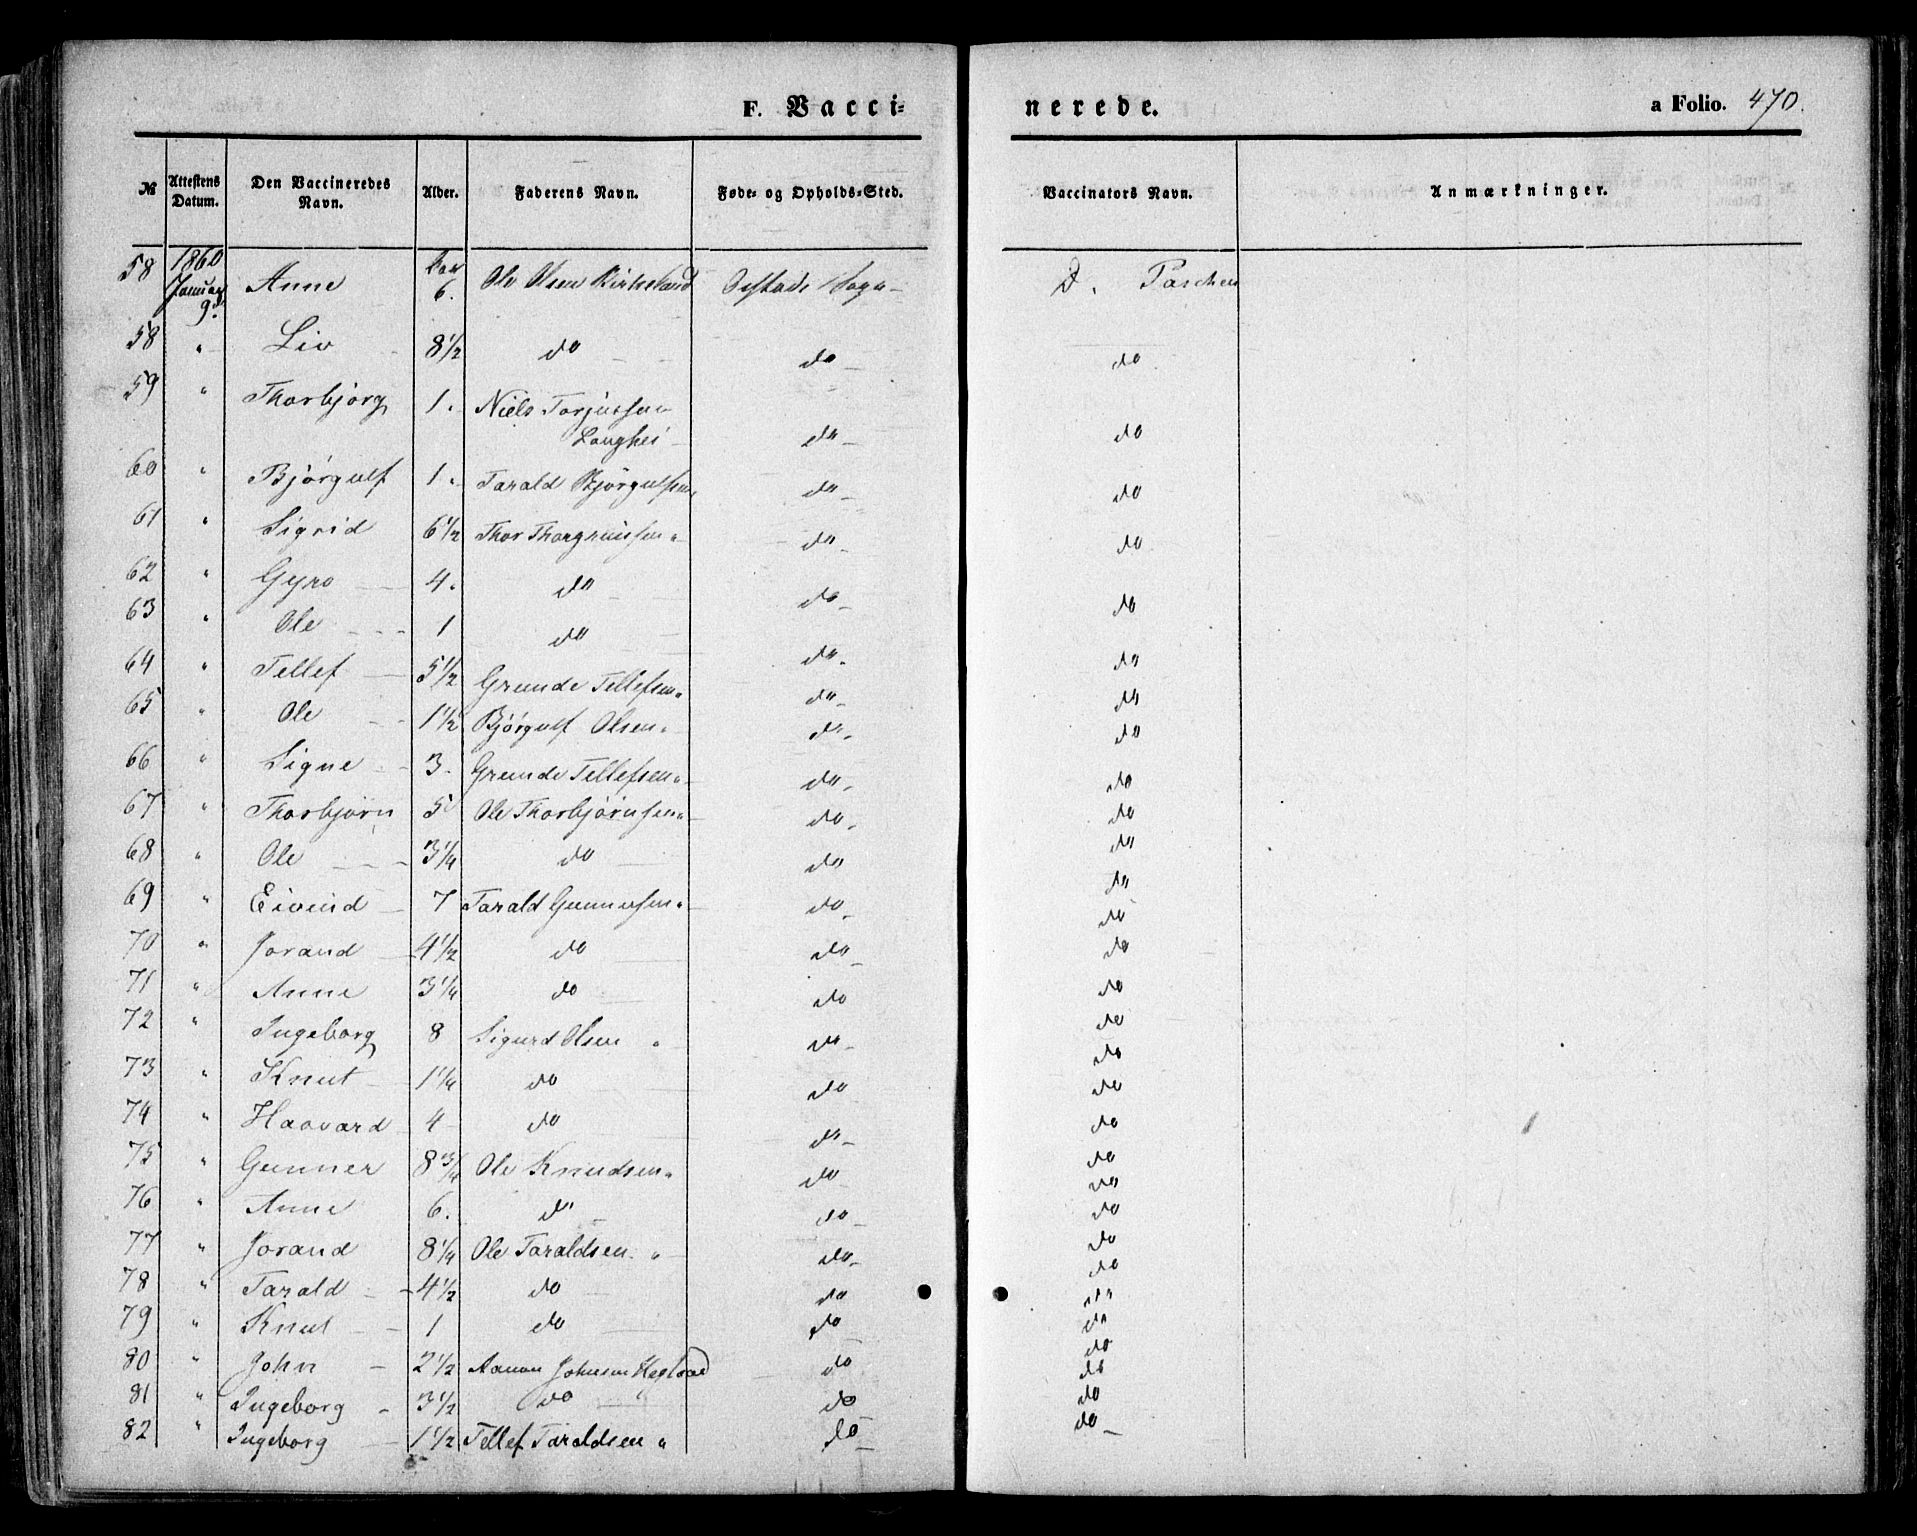 F. Vacci-
nerede.
a Folio. 470.
№
Attestens Datum.
Den Vaccineredes Navn.
Alder.
Faderens Navn.
Føde- og Opholds-Sted.
Vaccinators Navn.
Anmærkninger.
58 1860 Januar 9d. Anne 6. Ole Olsen Birkeland Sogn D. Paschen
58 " Liv 8 1/2 do do do
59 " Thorbjørg 1. Niels Torjussen
Langhei do do
60 " Bjørgulf 1. Tarald Bjørgulfsen do do
61 " Sigrid 6 1/2 Thor do do
62 " Gyro 4. do do do
63 " Ole 1 do do do
64 " Tellef 5 1/2 Grunde Tellefsen " do do
65 " Ole 1 1/2 Bjørgulf Olsen " do do
66 " Signe 3. Grunde Tellefsen " do do
67 " Thorbjørn 5 Ole Thorbjørnsen " do do
68 " Ole 3 1/4 do do do
69 " Eivind 7 Tarald Gunnersen " do do
70 " Jorand 4 1/2 do do do
71 " Anne 3 1/4 do do do
72 " Ingeborg 8 Sigurd Olsen " do do
73 " Knut 1 1/4 do do do
74 " Haavard 4 do do do
75 " Gunner 8 3/4 Ole Knudsen " do do
76 " Anne 6. do do do
77 " Jorand 8 1/4 Ole Taraldsen " do do
78 " Tarald 4 1/2 do do do
79 " Knut 1 do do do
80 " John 2 1/2 Aanon Johnsen do do
81 " Ingeborg 3 1/2 do " do do
82 " Ingeborg 1 1/2 Tellef Taraldsen " do do